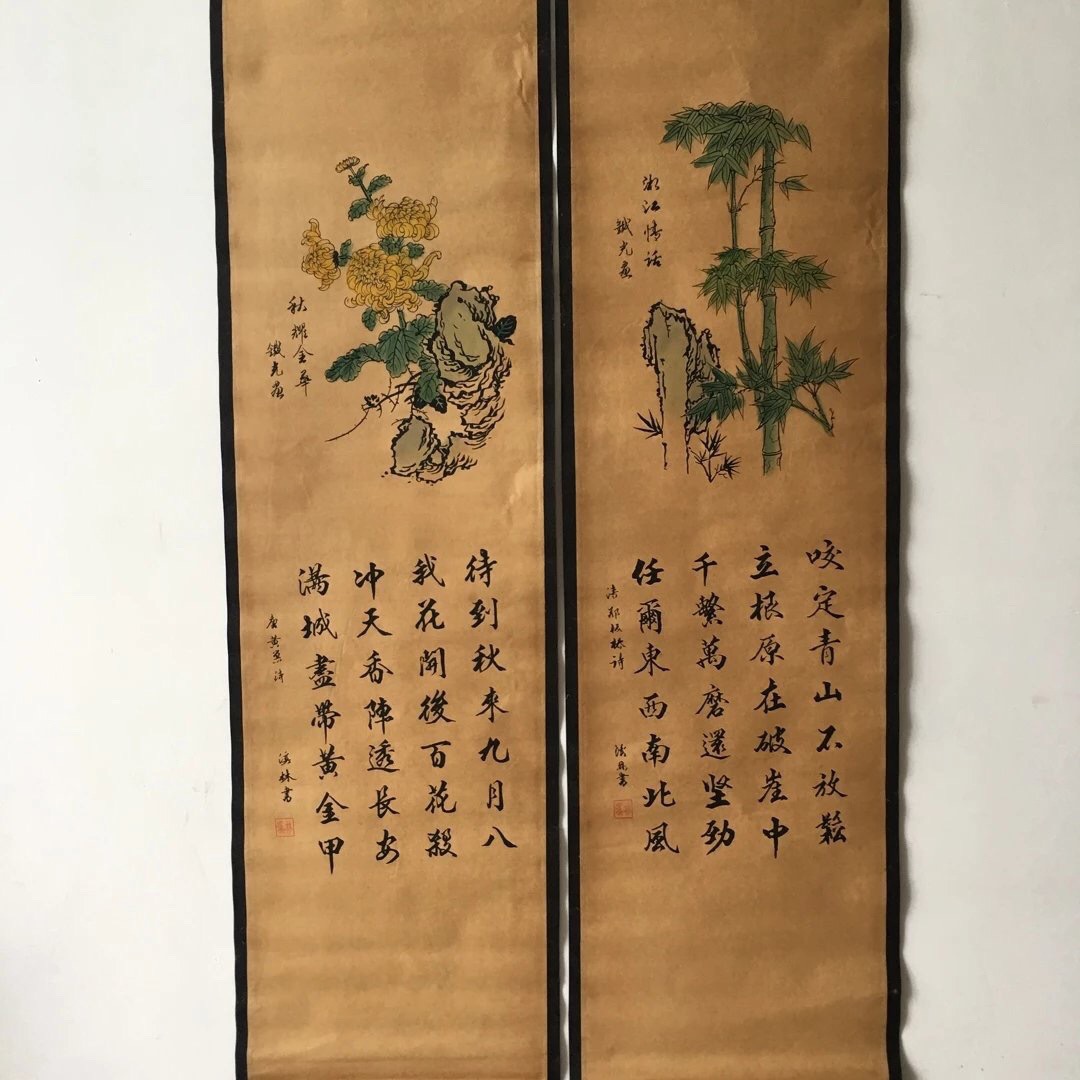 湘江情话
铁光画
咬定青山不放鬆
立根原在破崖中
千繫萬磨還坚劲
任爾東西南北風
清郑板桥诗
溪林書
秋耀金華
鐵光画
待到秋來九月八
我花開後百花殺
冲天香陣透長安
滿城盡帶黃金甲
唐黄巢诗
溪林書